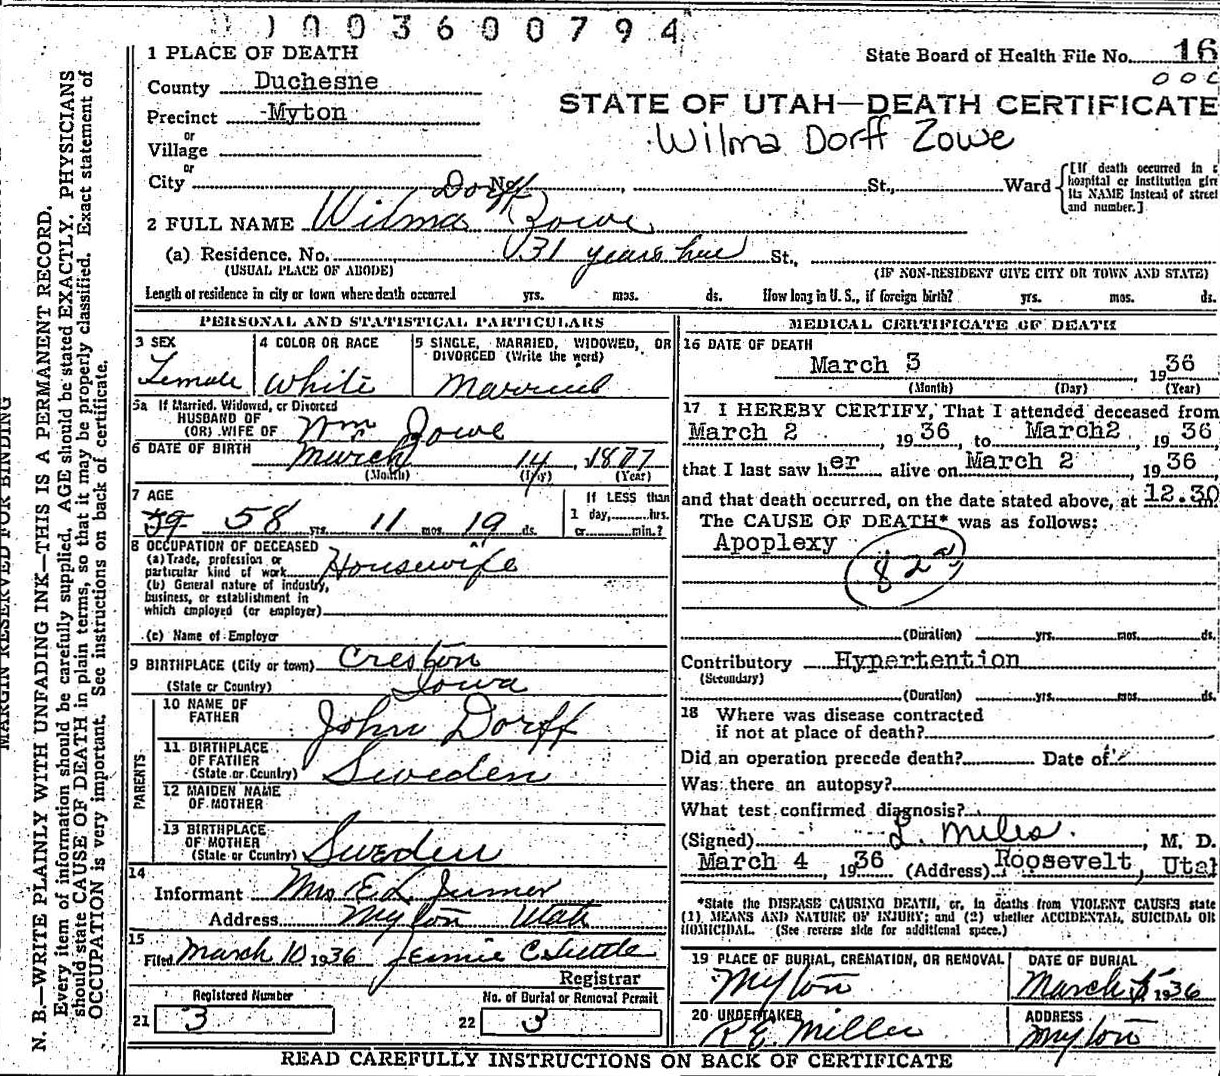 1003600794
1 PLACE OF DEATH
State Board of Health File No. 16
County Duchesne
Precinct Myton
STATE OF UTAH—DEATH CERTIFICATE
Wilma Dorff Zowe
or
Village
or
City No. St., Ward
[If death occurred in
hospital or institution give
its NAME instead of street
and number.]
Dorff
2 FULL NAME Wilma Zowe
(a) Residence. No. 31 years here St.,
(USUAL PLACE OF ABODE) (IF NON-RESIDENT GIVE CITY OR TOWN AND STATE)
Length of residence in city or town where death occurred yrs. mos. ds. How long in U. S., if foreign birth? yrs. mos. ds.
PERSONAL AND STATISTICAL PARTICULARS
3 SEX 4 COLOR OR RACE 5 SINGLE, MARRIED, WIDOWED, OR
DIVORCED (Write the word)
Female White Married
5a If Married, Widowed, or Divorced
HUSBAND OF
(OR) WIFE OF Wm Zowe
6 DATE OF BIRTH March 14, 1877
(Month) (Day) (Year)
7 AGE If LESS than
59 58 yrs. 11 mos. 19 ds. 1 day, hrs.
or min.?
8 OCCUPATION OF DECEASED
(a) Trade, profession or
particular kind of work Housewife
(b) General nature of industry,
business, or establishment in
which employed (or employer)
(c) Name of Employer
9 BIRTHPLACE (City or town) Creston
(State or Country) Iowa
PARENTS
10 NAME OF
FATHER John Dorff
11 BIRTHPLACE
OF FATHER
(State or Country) Sweden
12 MAIDEN NAME
OF MOTHER
13 BIRTHPLACE
OF MOTHER
(State or Country) Sweden
14
Informant Mrs E. L.
Address Myton Utah
15
Filed March 10 1936 Jennie C
Registrar
Registered Number No. of Burial or Removal Permit
21 3 22 3
MEDICAL CERTIFICATE OF DEATH
16 DATE OF DEATH
March 3, 1936
(Month) (Day) (Year)
17 I HEREBY CERTIFY, That I attended deceased from
March 2, 1936, to March2, 1936
that I last saw her alive on March 2, 1936
and that death occurred, on the date stated above, at 12.30
The CAUSE OF DEATH* was as follows:
Apoplexy
82a
(Duration) yrs. mos. ds.
Contributory Hypertention
(Secondary)
(Duration) yrs. mos. ds.
18 Where was disease contracted
if not at place of death?
Did an operation precede death? Date of
Was there an autopsy?
What test confirmed diagnosis?
(Signed) L. Miles, M. D.
March 4, 1936 (Address) Roosevelt, Utah
*State the DISEASE CAUSING DEATH, or, in deaths from VIOLENT CAUSES state
(1) MEANS AND NATURE OF INJURY; and (2) whether ACCIDENTAL, SUICIDAL OR
HOMICIDAL. (See reverse side for additional space.)
19 PLACE OF BURIAL, CREMATION, OR REMOVAL DATE OF BURIAL
Myton March 5 1936
20 UNDERTAKER ADDRESS
R E. Miller Myton
READ CAREFULLY INSTRUCTIONS ON BACK OF CERTIFICATE
MARGIN RESERVED FOR BINDING
N. B.—WRITE PLAINLY WITH UNFADING INK—THIS IS A PERMANENT RECORD.
Every item of information should be carefully supplied. AGE should be stated EXACTLY. PHYSICIANS
should state CAUSE OF DEATH in plain terms, so that it may be properly classified. Exact statement of
OCCUPATION is very important. See instructions on back of certificate.